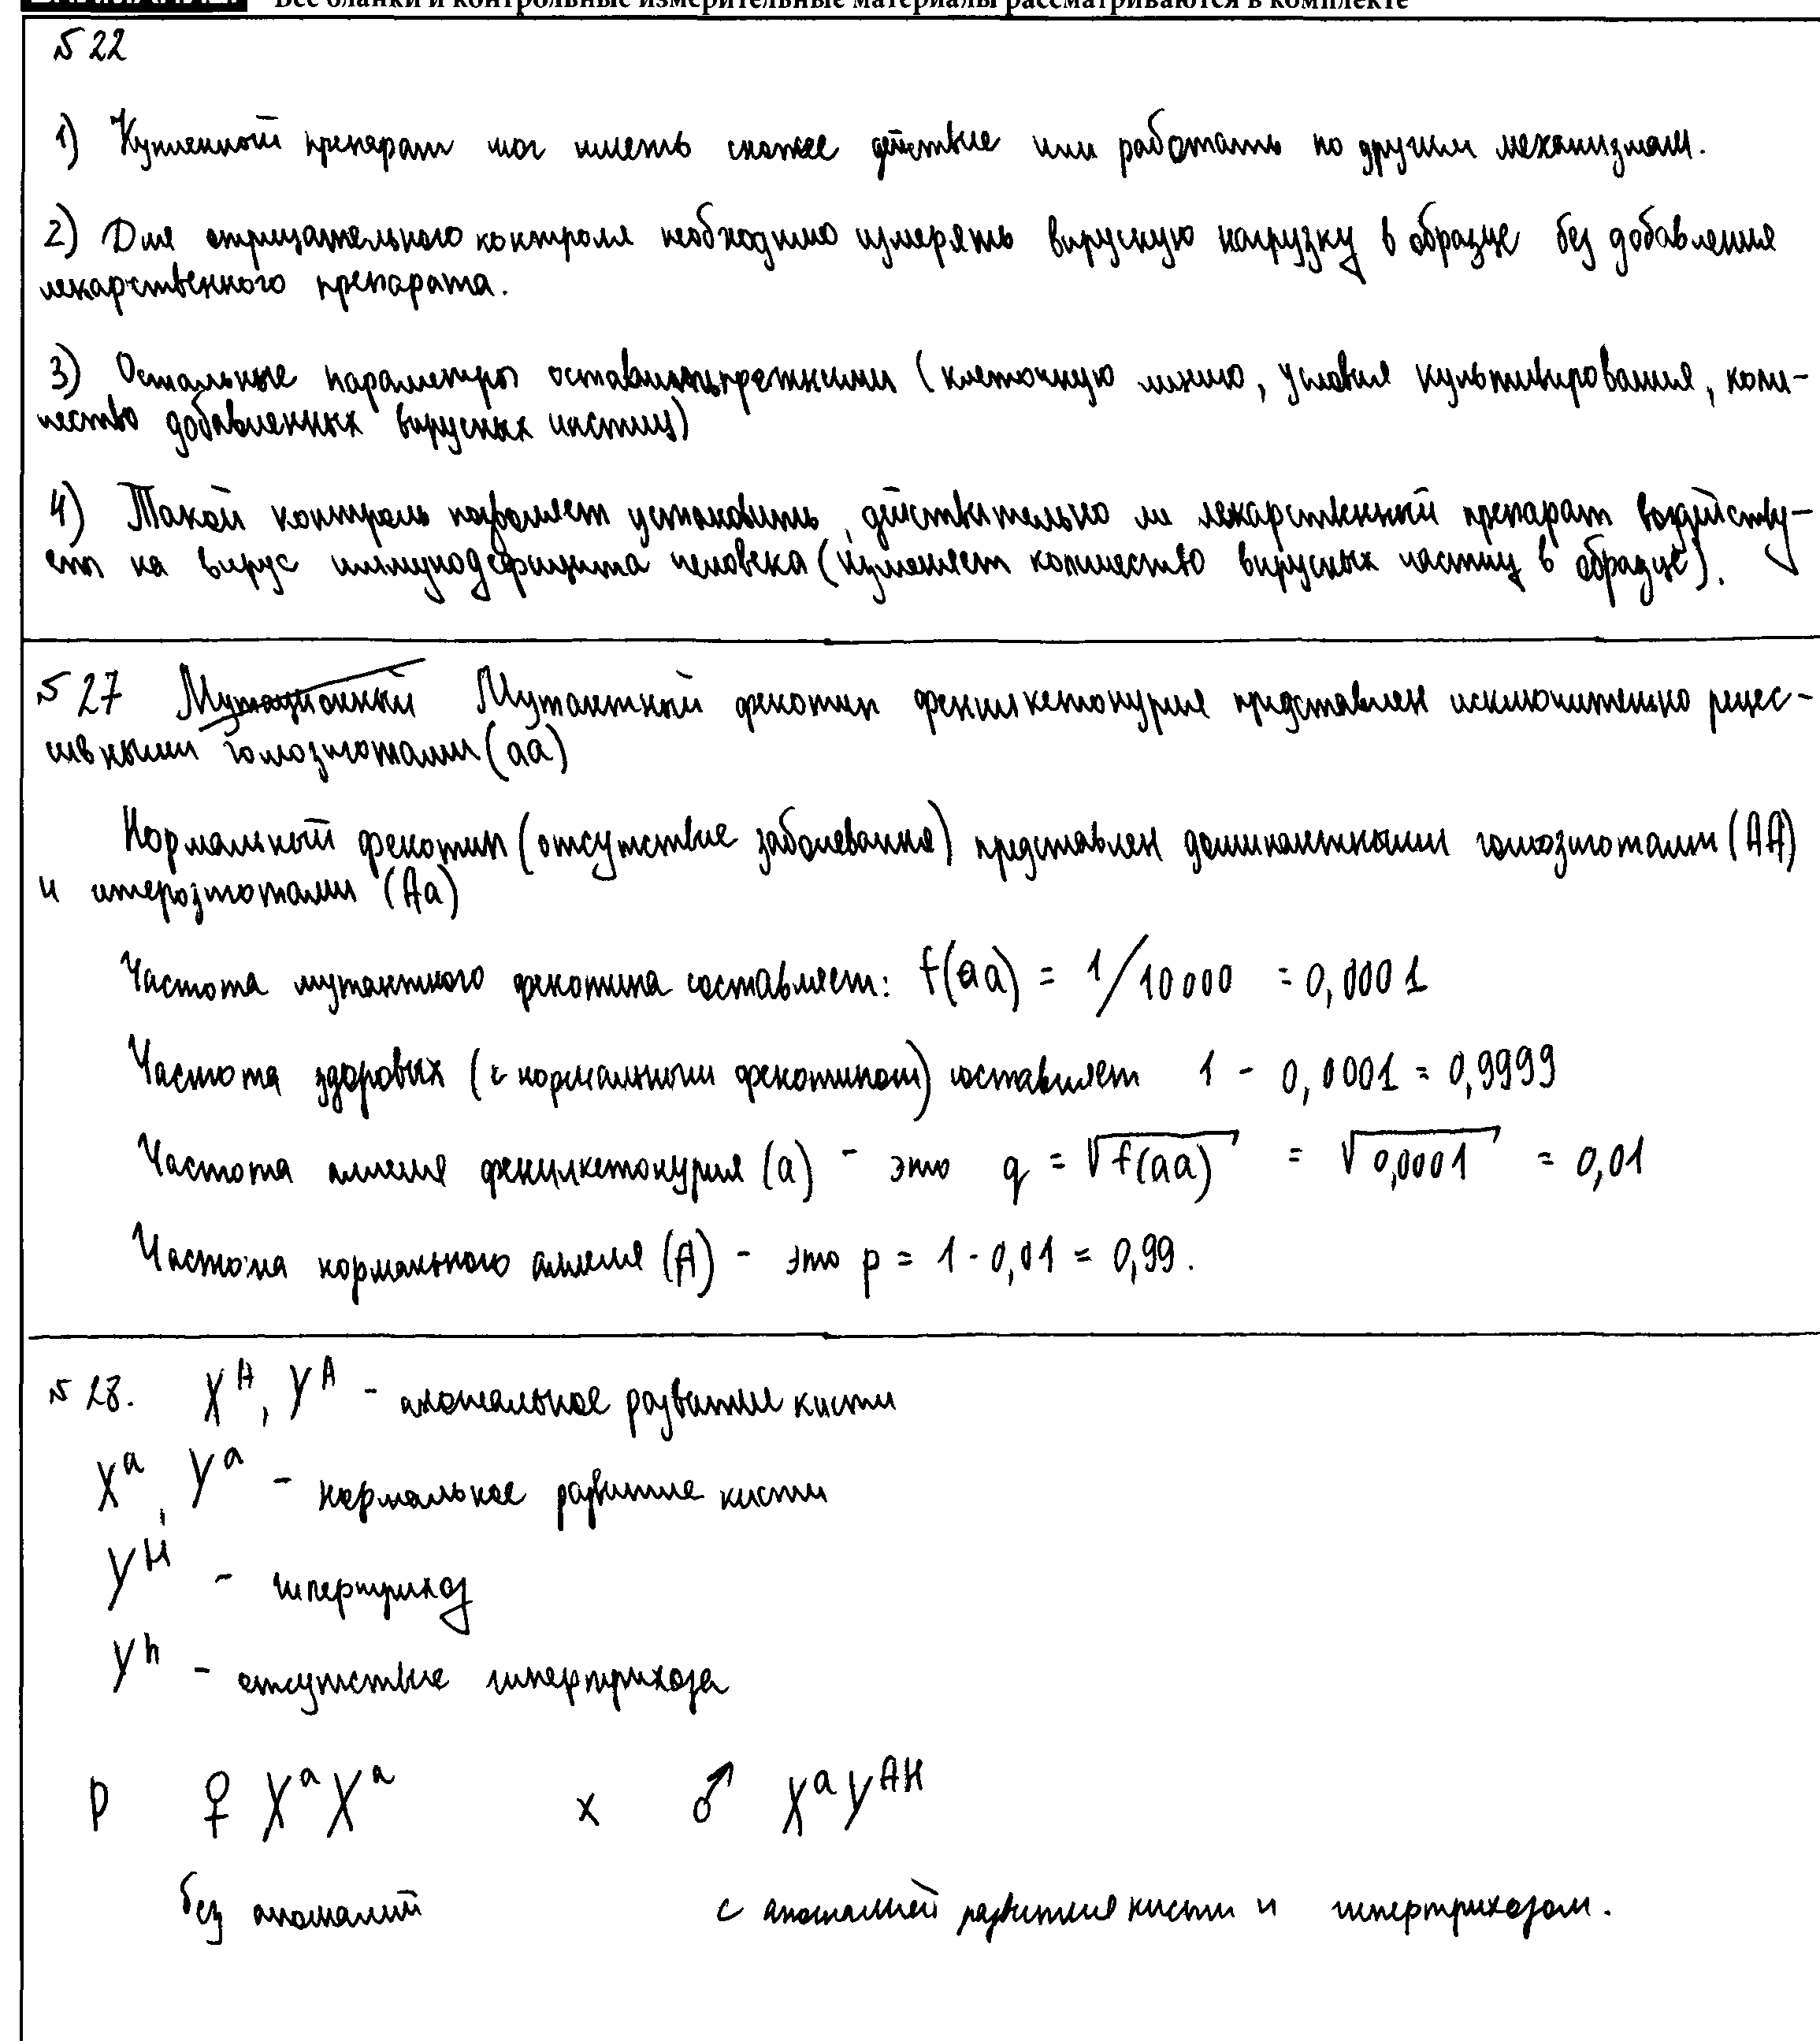 Все бланки и контрольные измерительные материалы рассматриваются в комплекте
№ 22
1) Купленный препарат мог иметь схожее действие или работать по другим механизмам.
2) Для отрицательного контроля необходимо измерять вирусную нагрузку в образце без добавления
лекарственного препарата.
3) Остальные параметры оставить прежними (клеточную линию, условия культивирования, коли-
чество добавленных вирусных частиц)
4) Такой контроль позволяет установить, действительно ли лекарственный препарат воздейству-
ет на вирус иммунодефицита человека (изменяет количество вирусных частиц в образце).
№ 27 Мутационный Мутантный фенотип фенилкетонурия представлен исключительно рецес-
сивными гомозиготами (aa)
Нормальный фенотип (отсутствие заболевания) представлен доминантными гомозиготами (AA)
и гетерозиготами (Aa)
Частота мутантного фенотипа составляет: f(aa) = 1/10000 = 0,0001
Частота здоровых (с нормальным фенотипом) составляет 1 - 0,0001 = 0,9999
Частота аллеля фенилкетонурия (a) - это q = √f(aa) = √0,0001 = 0,01
Частота нормального аллеля (A) - это p = 1 - 0,01 = 0,99.
№ 28. X^A, Y^A - аномальное развитие кисти
X^a, Y^a - нормальное развитие кисти
Y^H - гипертрихоз
Y^h - отсутствие гипертрихоза
P ♀ X^a X^a x ♂ X^a Y^AH
без аномалий с аномалией развития кисти и гипертрихозом.